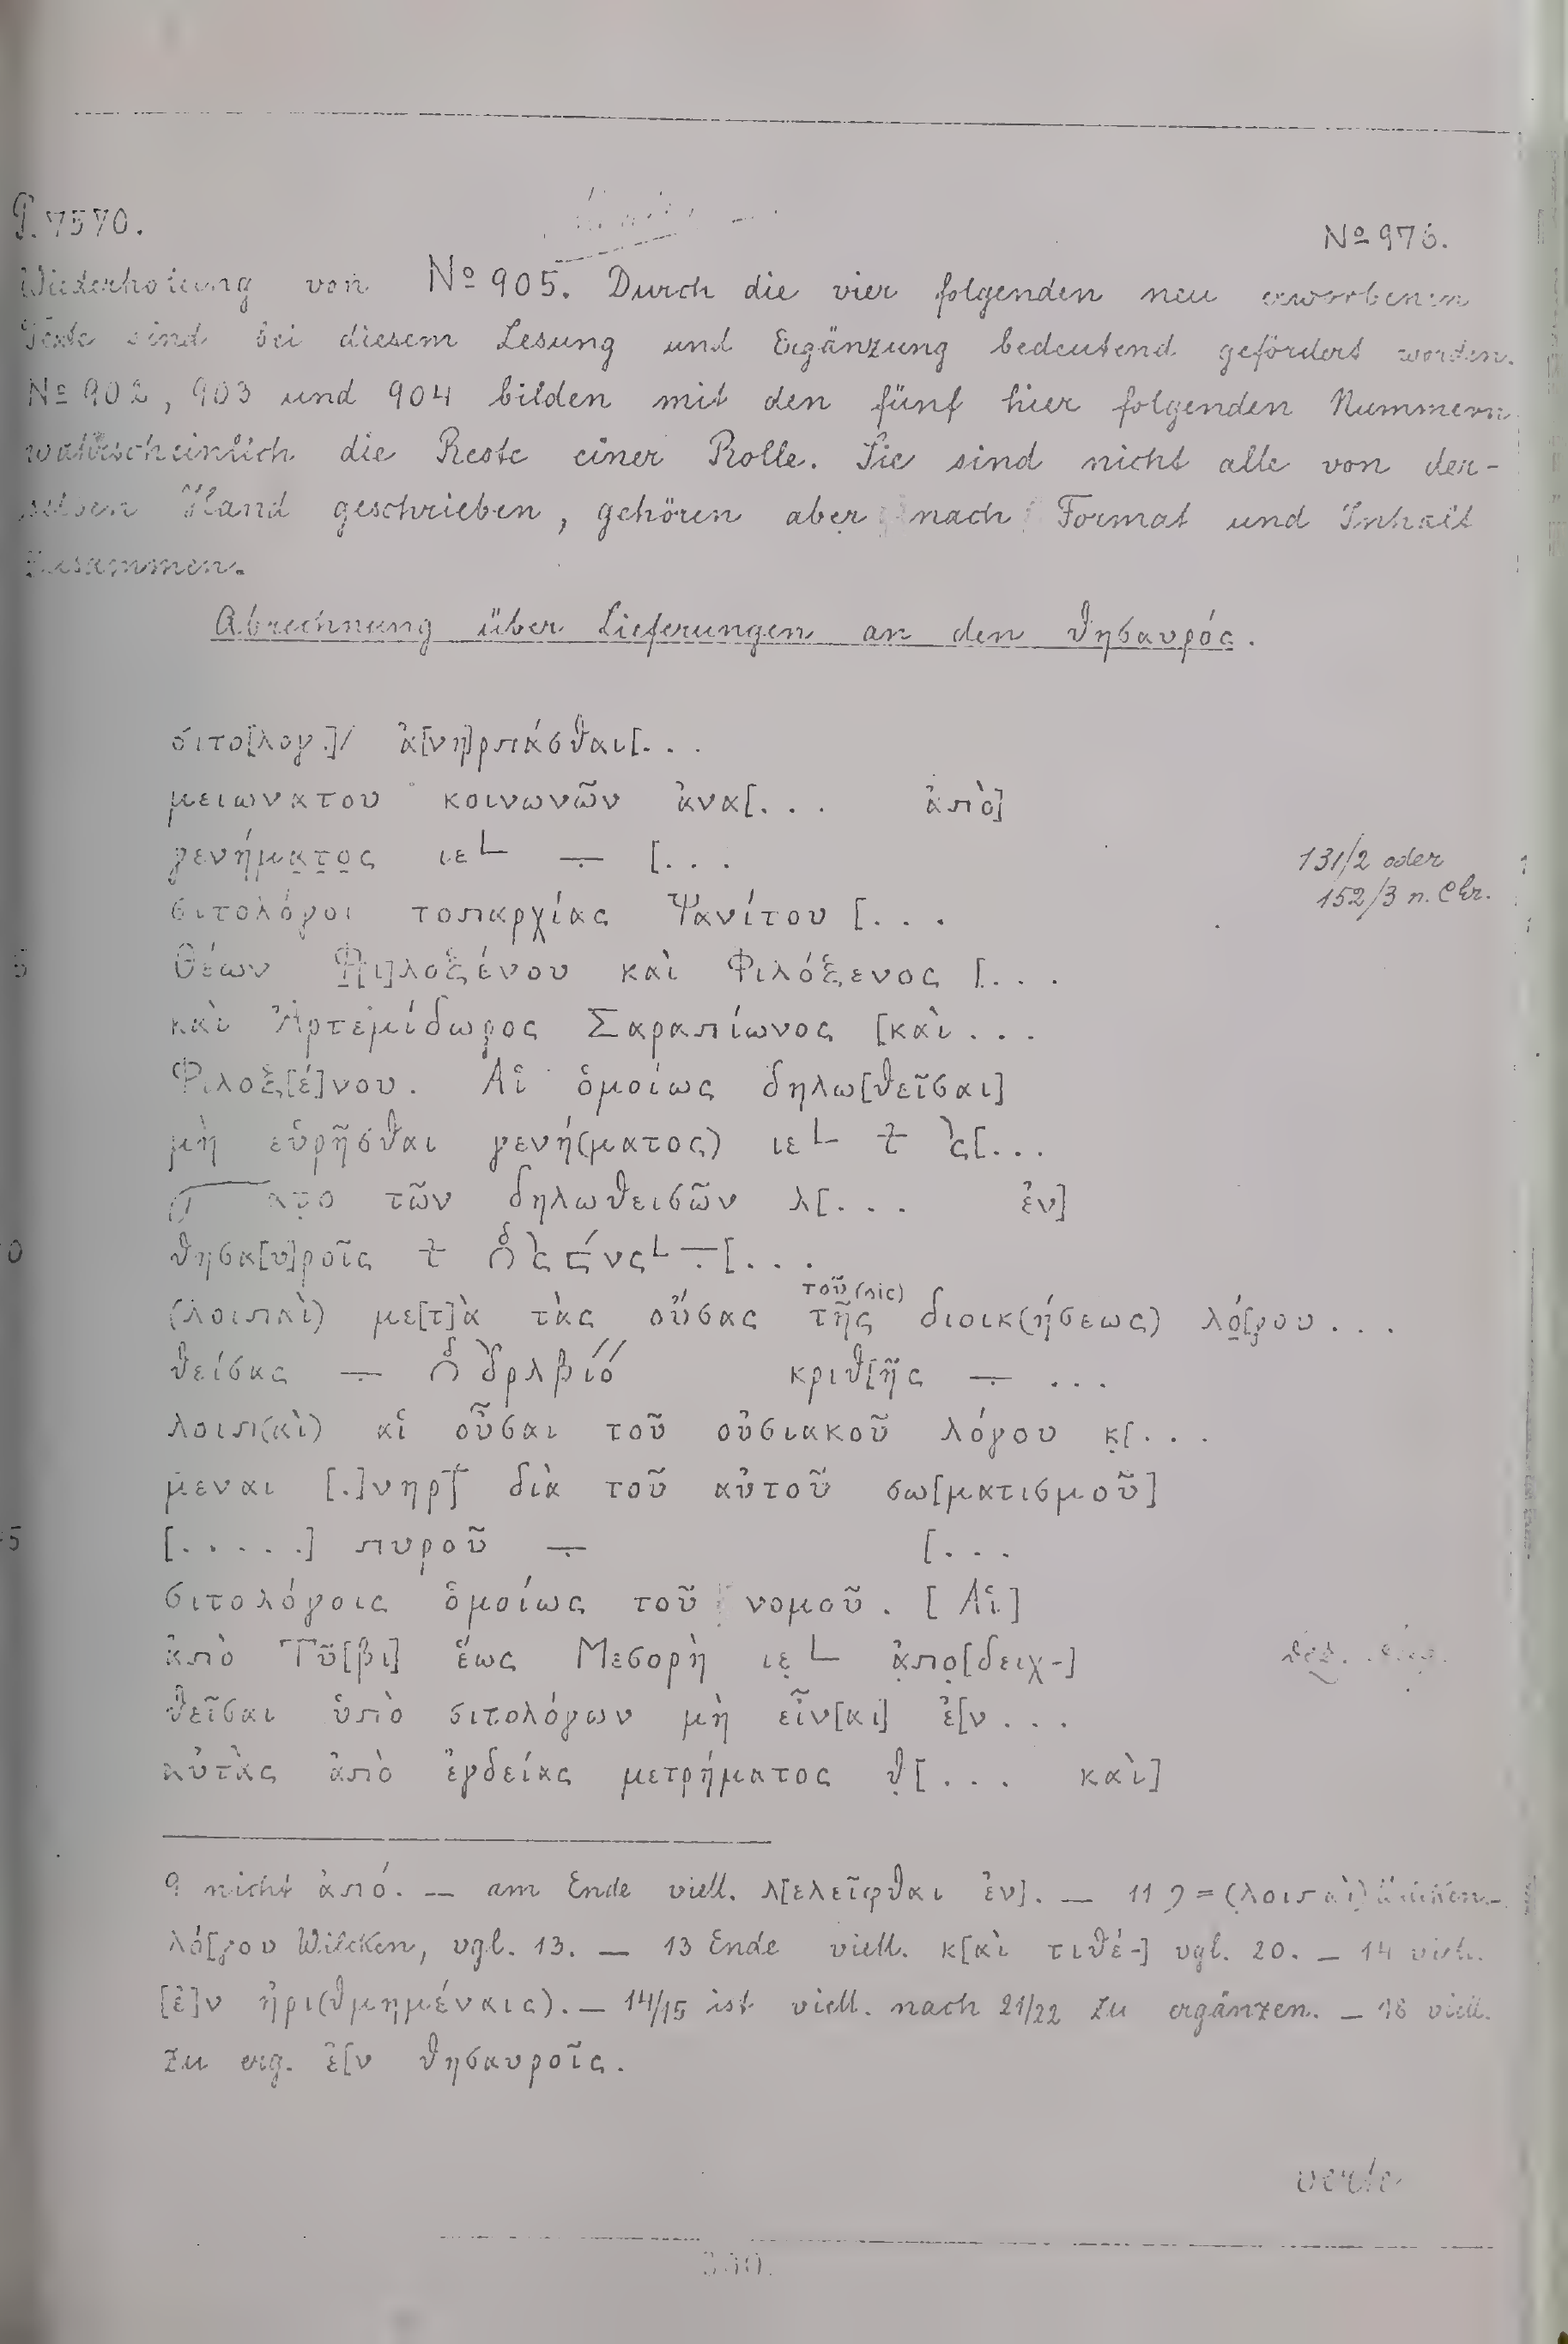 P. 7570.
No 976.
Wiederholung von No 905. Durch die vier folgenden neu erworbenen
Texte sind bei diesem Lesung und Ergänzung bedeutend gefördert worden.
No 902, 903 und 904 bilden mit den fünf hier folgenden Nummern
wahrscheinlich die Reste einer Rolle. Sie sind nicht alle von der-
selben Hand geschrieben, gehören aber nach Format und Inhalt
zusammen.
Abrechnung über Lieferungen an den θησαυρός.
σιτο[λογ.]/ ἀ[νη]ρπάσθαι[. . .
μειωνατου κοινωνῶν ἀνα[. . . ἀπὸ]
γενήματος ιε L ÷ [. . .
131/2 oder
152/3 n. Chr.
σιτολόγοι τοπαρχίας Ψανίτου [. . .
5 Θέων Φ[ι]λοξένου καὶ Φιλόξενος [. . .
καὶ Ἀρτεμίδωρος Σαραπίωνος [καὶ . . .
Φιλοξ[έ]νου. Αἱ ὁμοίως δηλω[θεῖσαι]
μὴ εὑρῆσθαι γενή(ματος) ιε L [. . .
τῶν δηλωθεισῶν λ[. . . ἐν]
0 θησα[υ]ροῖς [. . .
(λοιπαὶ) με[τ]ὰ τὰς οὔσας τῆς τοῦ (sic) διοικ(ήσεως) λό[γου . . .
θείσας ÷ κριθ[ῆς ÷ . . .
λοιπ(αὶ) αἱ οὖσαι τοῦ οὐσιακοῦ λόγου κ[. . .
μεναι [.]νηρ διὰ τοῦ αὐτοῦ σω[ματισμοῦ]
5 [. . . . .] πυροῦ ÷ [. . .
σιτολόγοις ὁμοίως τοῦ νομοῦ. [Αἱ]
ἀπὸ Τῦ[βι] ἕως Μεσορὴ ιε L ἀπο[δειχ-]
θεῖσαι ὑπὸ σιτολόγων μὴ εἶν[αι] ἐ[ν . . .
αὐτὰς ἀπὸ ἐγδείας μετρήματος θ[. . . καὶ]
9 nicht ἀπό. — am Ende viell. λ[ελεῖφθαι ἐν]. — 11 = (λοιπαὶ) Wilcken.-
λό[γου Wilcken, vgl. 13. — 13 Ende viell. κ[αὶ τιθέ-] vgl. 20. — 14 viell.
[ἐ]ν ἠρι(θμημέναις). — 14/15 ist viell. nach 21/22 zu ergänzen. — 18 viell.
zu erg. ἐ[ν θησαυροῖς.
verte